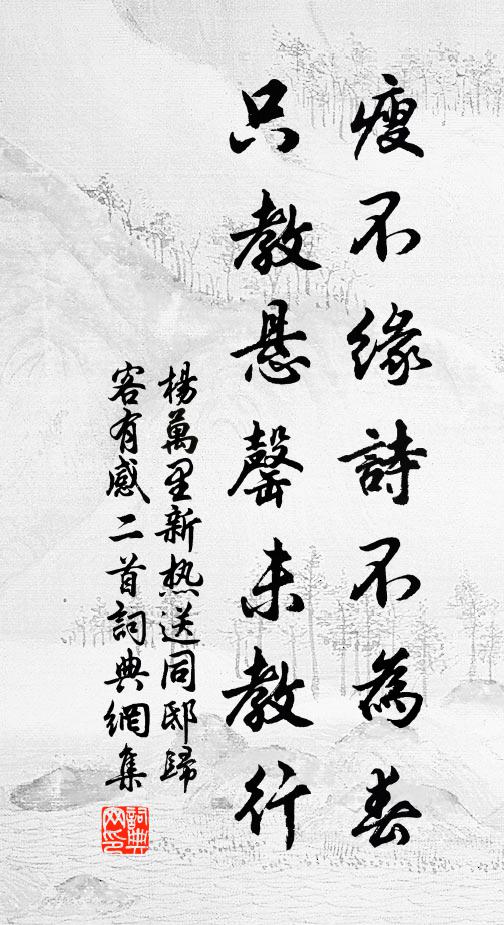 瘦不緣詩不為春
只教懸罄未教行
楊萬里新热送同邸歸
客有感二首詞典網集
詞典
网印